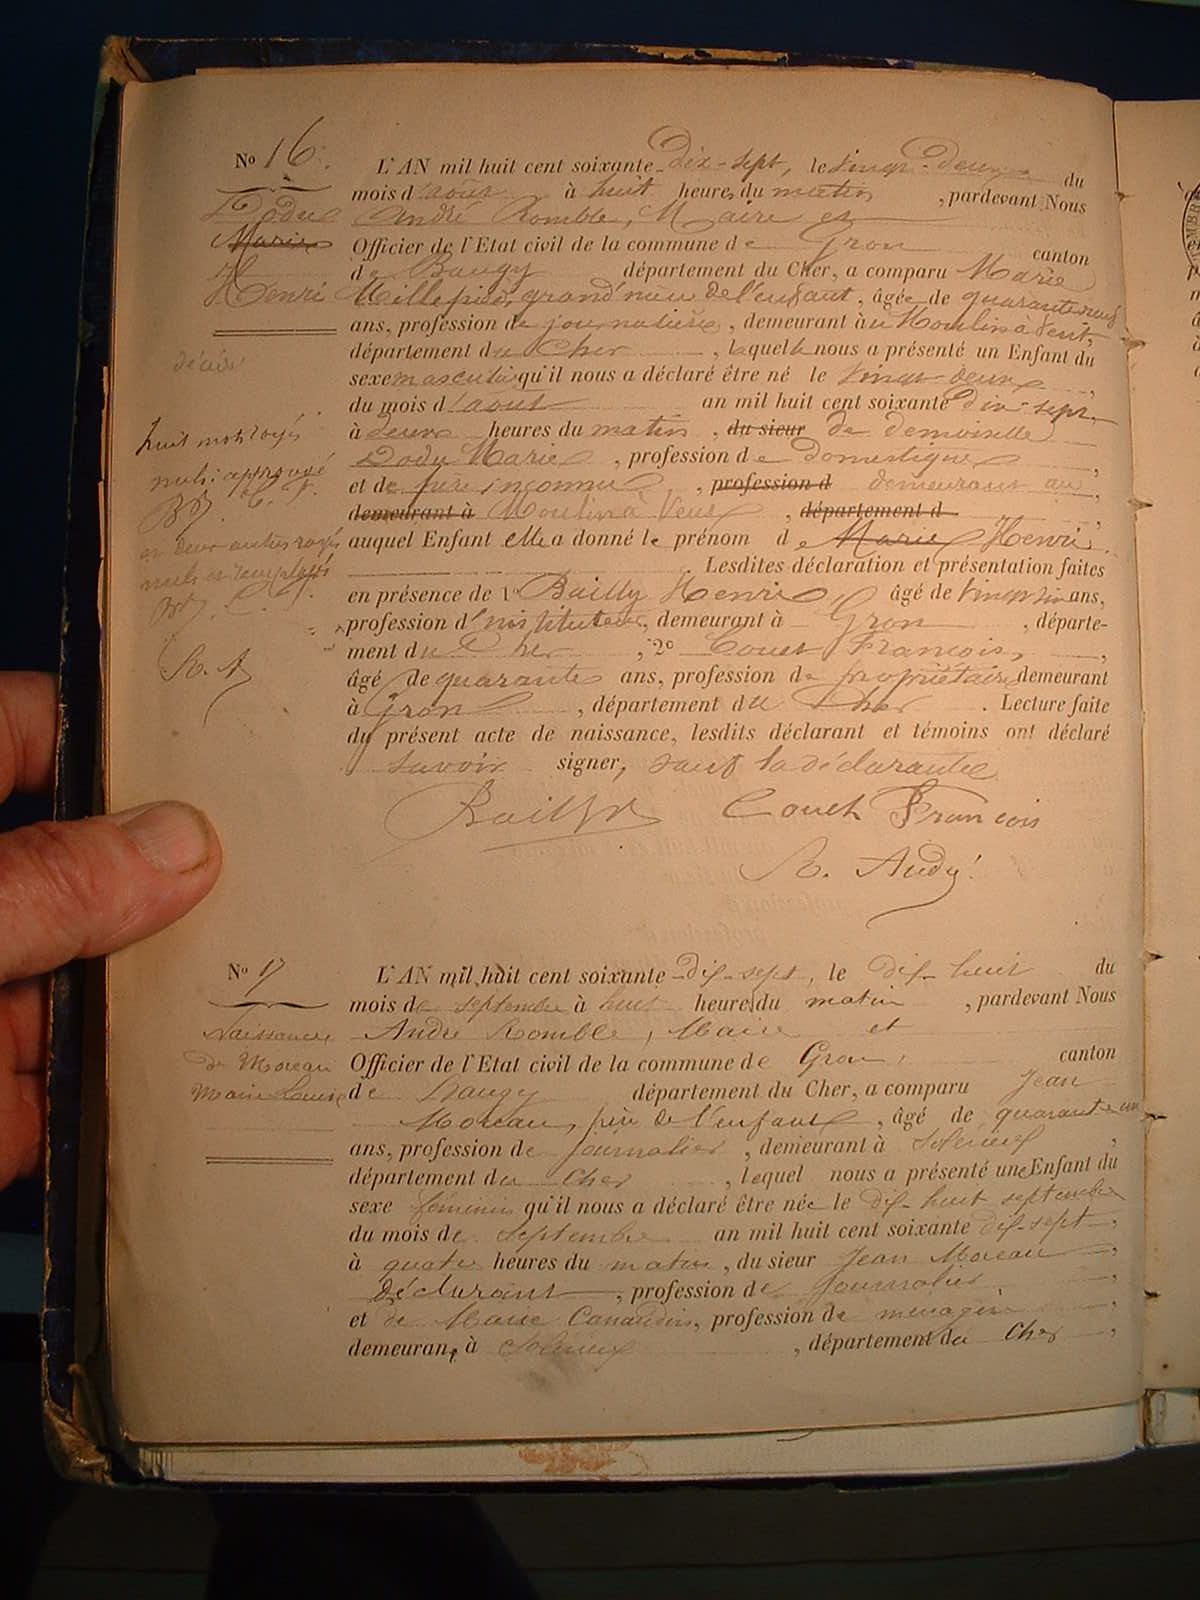 No 16.
L'AN mil huit cent soixante Dix-sept, le vingt-deux du
mois d'août à huit heures du matin, pardevant Nous
Dodu
André Romble, Maire et
Marie
Officier de l'Etat civil de la commune de Gron canton
Henri
de Baugy département du Cher, a comparu Marie
Millepied, de l'enfant, âgée de quarante neuf
ans, profession de journalière, demeurant au Moulin à Vent,
département du Cher, laquelle nous a présenté un Enfant du
décédé
sexe masculin qu'il nous a déclaré être né le vingt-deux,
du mois d'août an mil huit cent soixante dix-sept,
à deux heures du matin, du sieur de demoiselle
huit mots rayés
Dodu Marie, profession de domestique,
nuls: approuvé
et de père inconnu, profession d demeurant au,
demeurant à Moulin à Vent, département d
et deux autres rayés
auquel Enfant elle a donné le prénom de Marie Henri.
nuls et remplacés
Lesdites déclaration et présentation faites
en présence de 1º Bailly Henri, âgé de ans,
profession d'instituteur, demeurant à Gron, départe-
ment du Cher, 2º Couet François,
R. A
âgé de quarante ans, profession de propriétaire demeurant
à Gron, département du Cher. Lecture faite
du présent acte de naissance, lesdits déclarant et témoins ont déclaré
savoir signer, sauf la déclarante
Bailly Couet François
R. André
No 17
L'AN mil huit cent soixante-dix-sept, le dix-huit du
mois de septembre à huit heures du matin, pardevant Nous
Naissance
André Romble, Maire et
de Moreau
Officier de l'Etat civil de la commune de Gron, canton
Marie Louise
de Baugy département du Cher, a comparu Jean
Moreau, père de l'enfant, âgé de quarante un
ans, profession de journalier, demeurant à
département du Cher, lequel nous a présenté une Enfant du
sexe féminin qu'il nous a déclaré être née le dix-huit septembre
du mois de septembre an mil huit cent soixante dix-sept,
à quatre heures du matin, du sieur Jean Moreau,
déclarant, profession de journalier,
et de Marie, profession de menagère,
demeurant à, département du Cher,